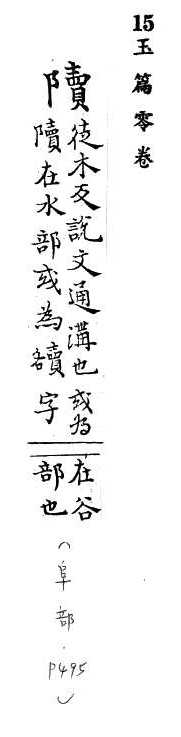 15 玉篇零卷
𨽍
徒木反說文通溝也或為
𨽍在水部或為豄字
在谷
部也
(阜部.P495)